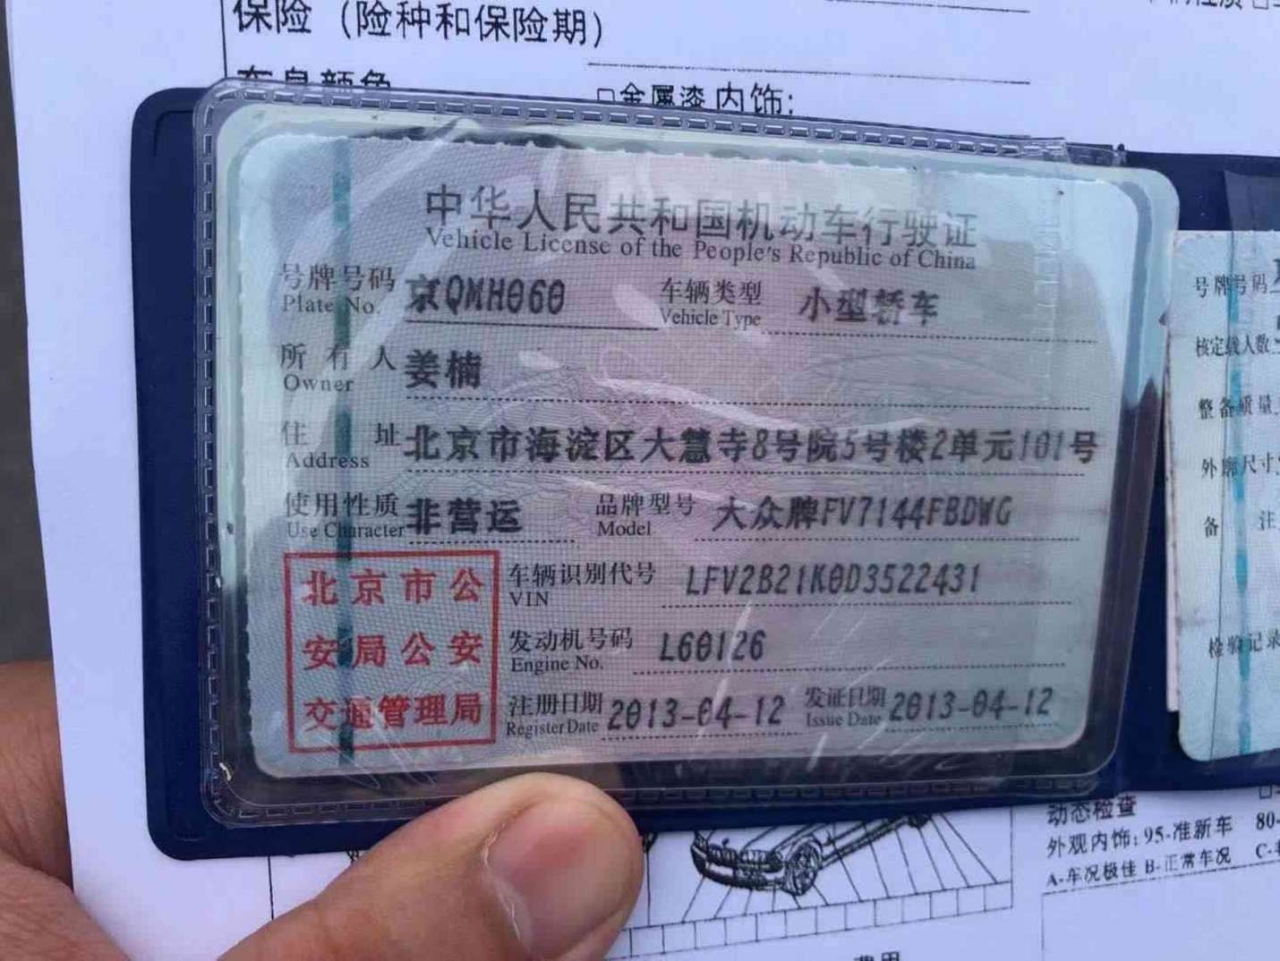 保险（险种和保险期）
车身颜色
□金属漆 内饰:
中华人民共和国机动车行驶证
Vehicle License of the People's Republic of China
号牌号码 京QMH060 车辆类型 小型轿车
Plate No. Vehicle Type
所有人 姜楠
Owner
住址 北京市海淀区大慧寺8号院5号楼2单元101号
Address
使用性质 非营运 品牌型号 大众牌FV7144FBDWG
Use Character Model
北京市公
安局公安
交通管理局
车辆识别代号 LFV2B21K0D3522431
VIN
发动机号码 L60126
Engine No.
注册日期 2013-04-12 发证日期 2013-04-12
Register Date Issue Date
号牌号码
核定载人数
整备质量
外廓尺寸
备 注
检验记录
动态检查
外观内饰: 95-准新车 80-
A-车况极佳 B-正常车况 C-
费用